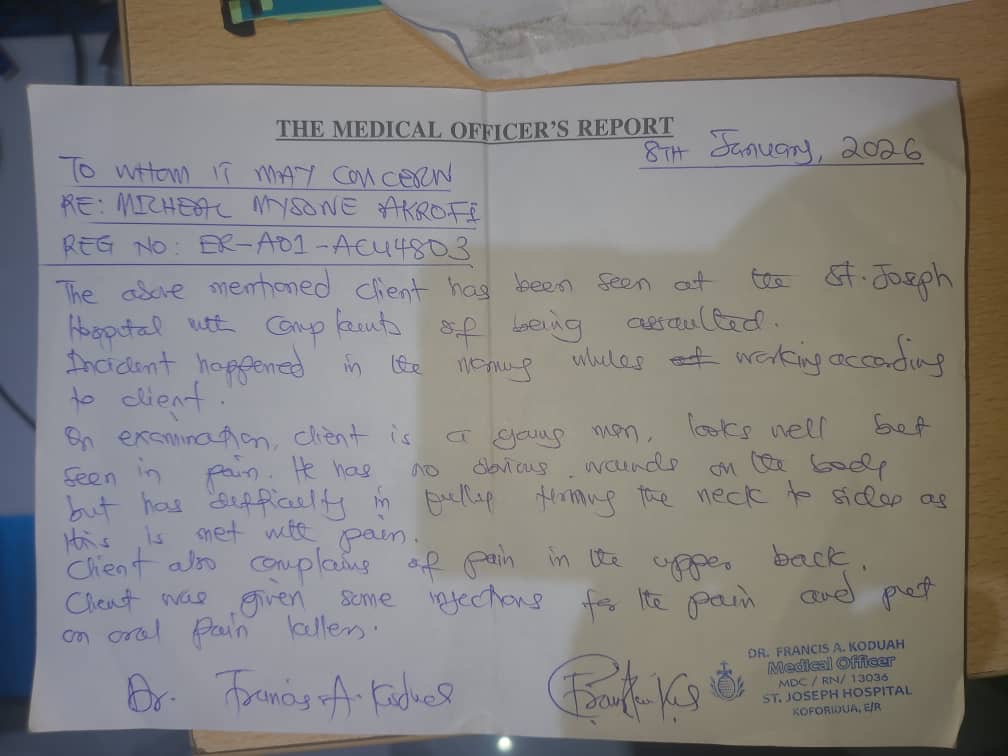 THE MEDICAL OFFICER'S REPORT
8TH January, 2026
TO WHOM IT MAY CONCERN
RE: MICHEAL MYSONE AKROFI
REG NO: ER-A01-ACU4803
The above mentioned client has been seen at the St. Joseph
Hospital with complaints of being assaulted.
Incident happened in the morning whiles working according
to client.
On examination, client is a young man, looks well but
seen in pain. He has no obvious wounds on the body
but has difficulty in fully turning the neck to sides as
this is met with pain.
Client also complains of pain in the upper back.
Client was given some injections for the pain and put
on oral pain killers.
Dr. Francis A. Koduah
DR. FRANCIS A. KODUAH
Medical Officer
MDC / RN/ 13036
ST. JOSEPH HOSPITAL
KOFORIDUA, E/R